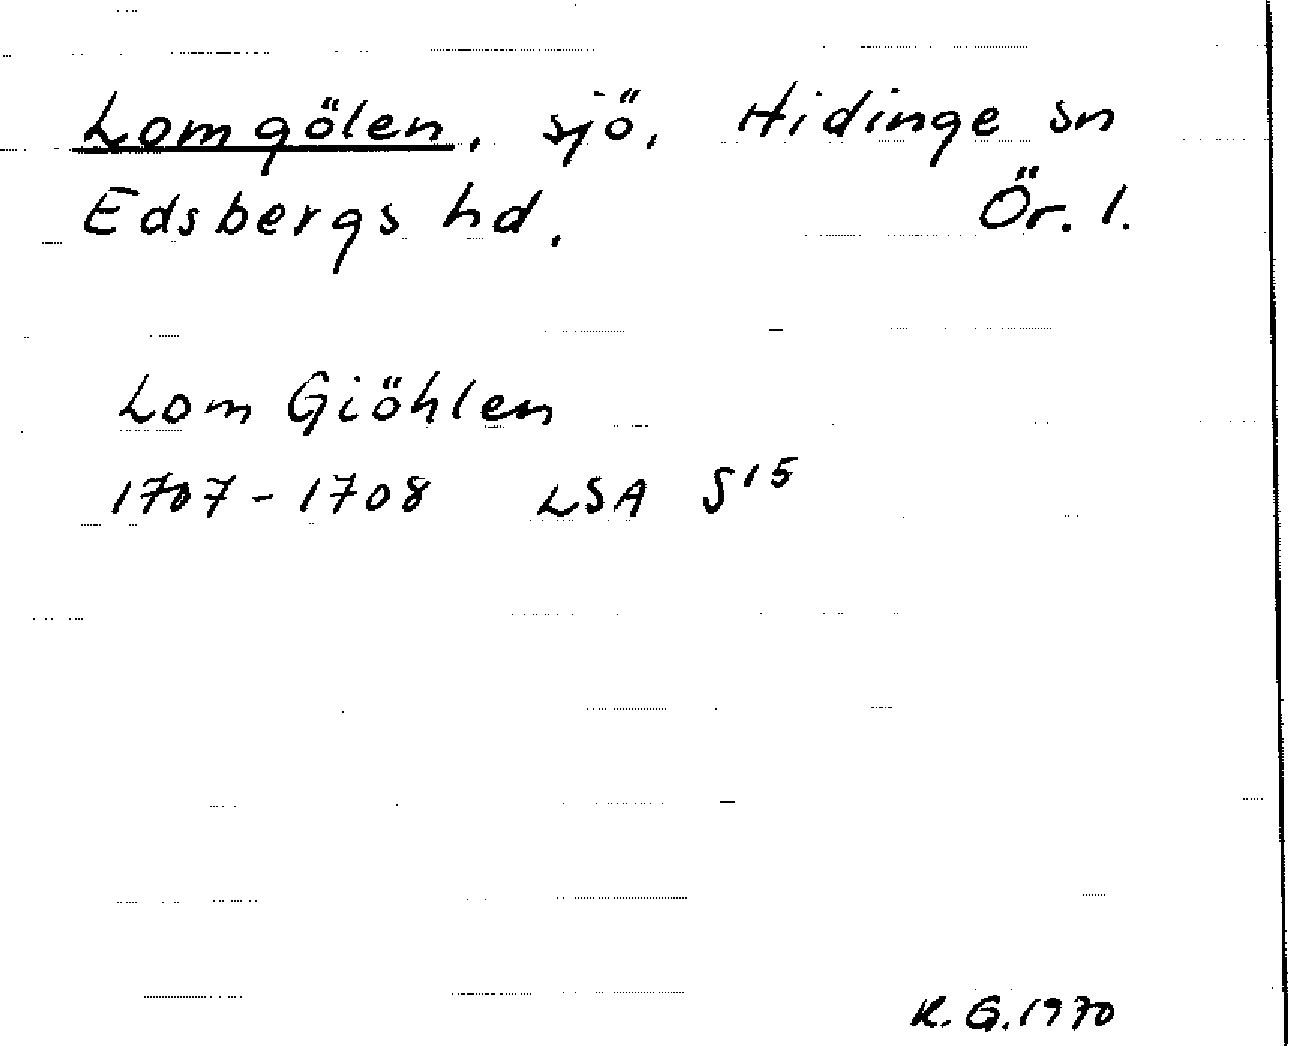 Lomgölen, sjö, Hidinge sn
Edsbergs hd, Ör. l.
Lom Giöhlen
1707-1708 LSA S15
K.G.1970